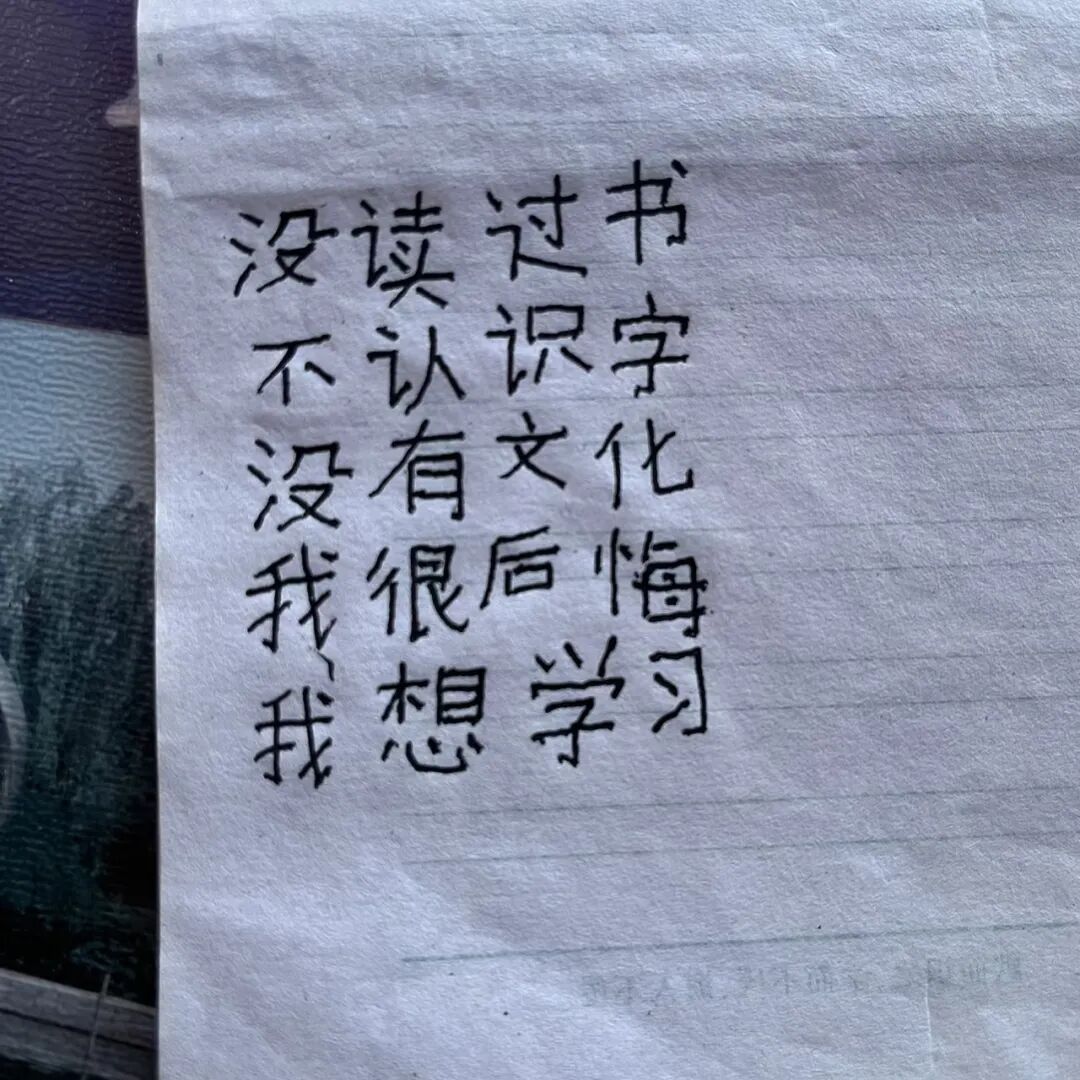 没读过书
不认识字
没有文化
我很后悔
我想学习